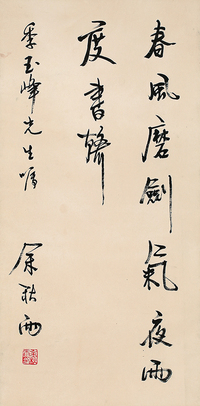 春風磨劍氣夜雨
度書聲
季玉峰先生嘱
余秋雨